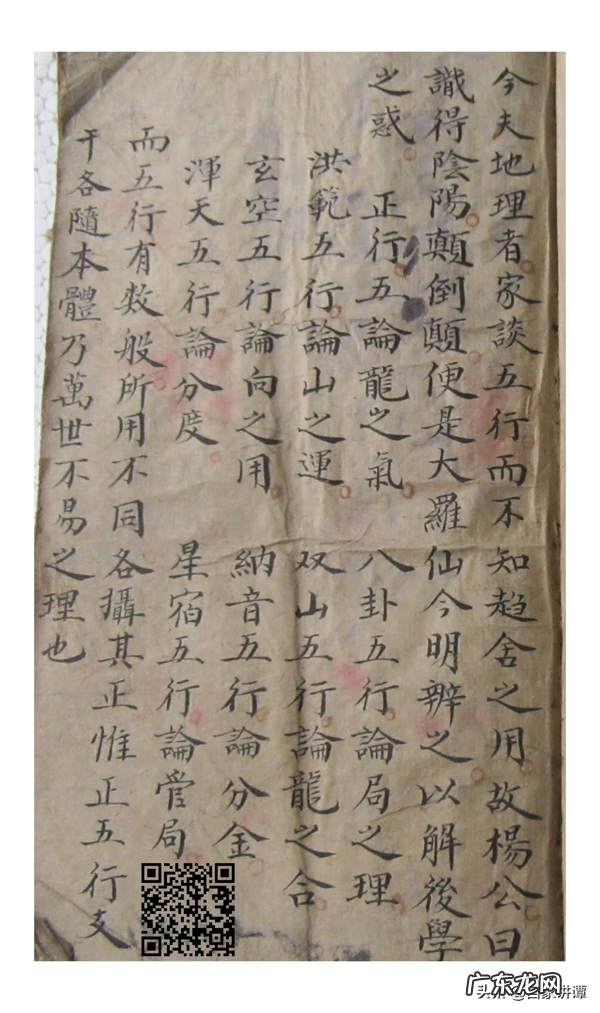 今夫地理者家談五行而不知趋舍之用故楊公曰
識得陰陽顛倒顛便是大羅仙今明辨之以解後學
之惑　正行五論龍之氣　八卦五行論局之理
洪範五行論山之運　双山五行論龍之合
玄空五行論向之用　納音五行論分金
渾天五行論分度　星宿五行論管局
而五行有数般所用不同各攝其正惟正五行支
干各隨本體乃萬世不易之理也
广东龙网